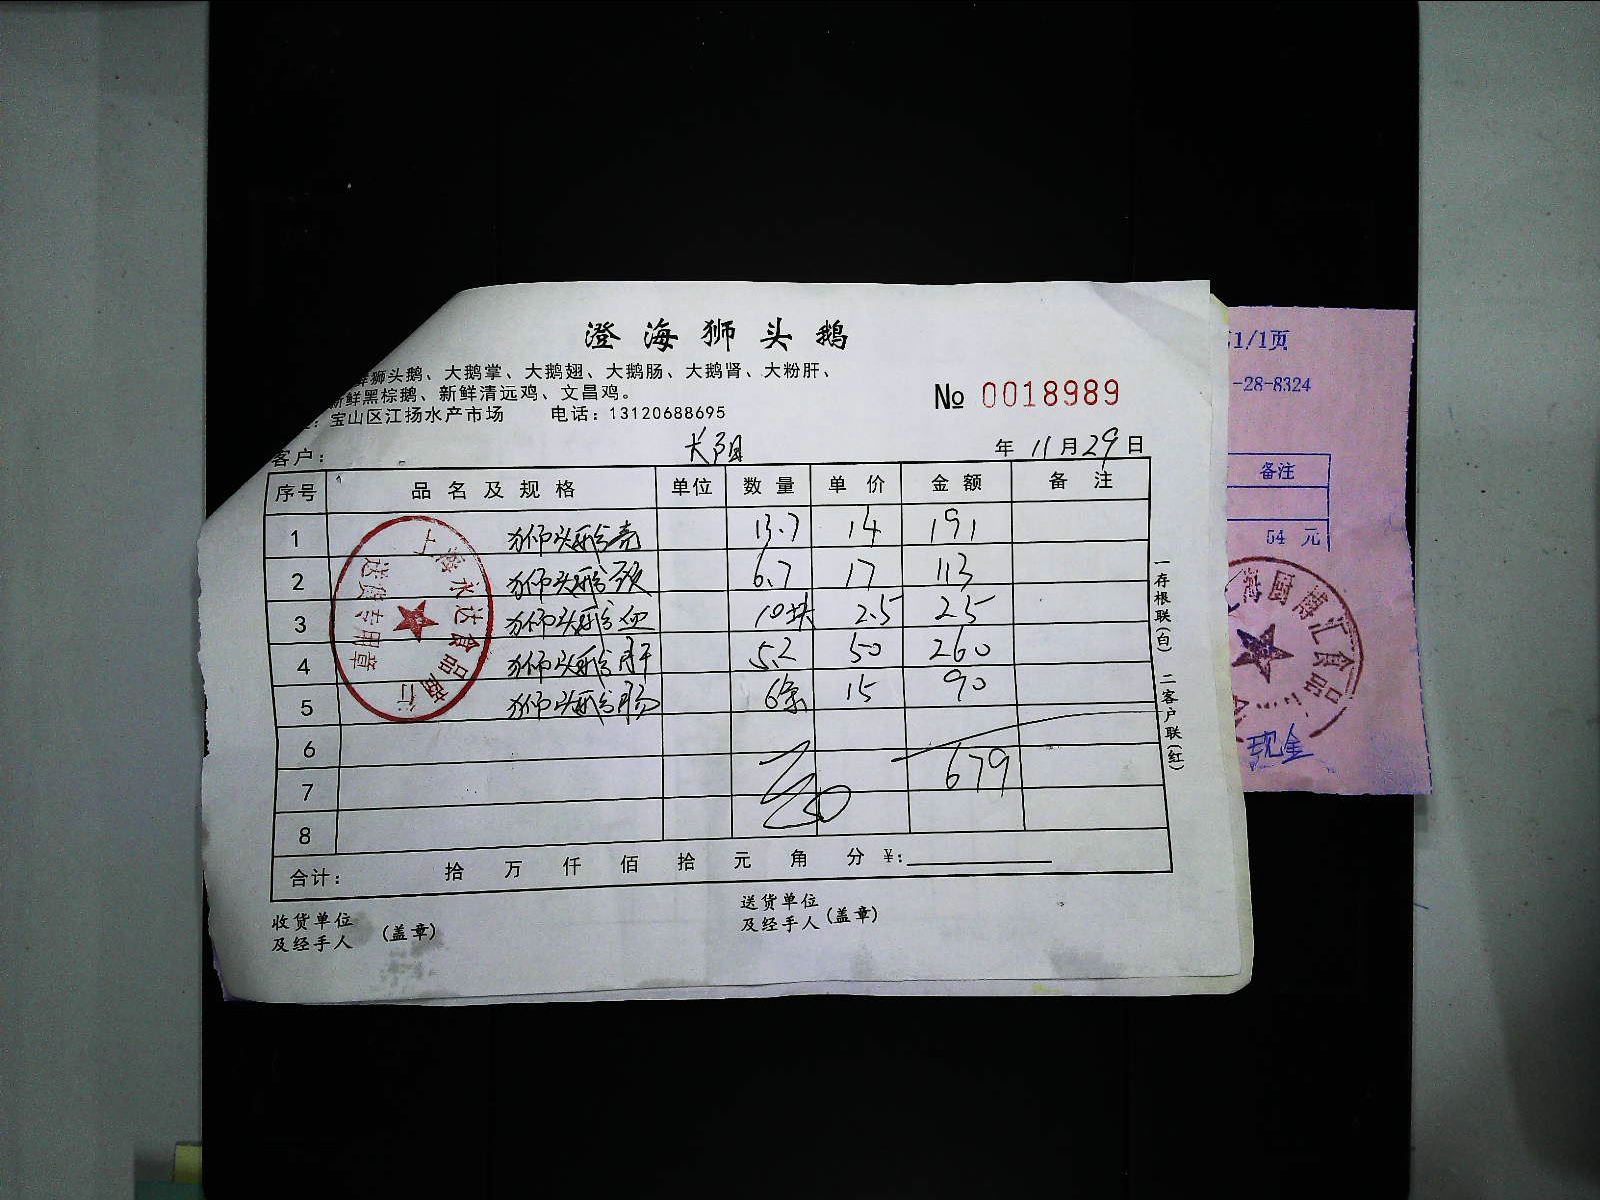 澄海狮头鹅
狮头鹅、大鹅掌、大鹅翅、大鹅肠、大鹅肾、大粉肝、
新鲜黑棕鹅、新鲜清远鸡、文昌鸡。
宝山区江扬水产市场 电话：13120688695
№ 0018989
客户： 长阳 年 11月29日
序号 品名及规格 单位 数量 单价 金额 备注
1 狮头鹅壳 13.7 14 191
2 狮头鹅颈 6.7 17 113
3 狮头鹅血 10块 2.5 25
4 狮头鹅肝 5.2 50 260
5 狮头鹅肠 6条 15 90
6
7 679
8
合计： 拾 万 仟 佰 拾 元 角 分 ¥：
收货单位
及经手人 （盖章）
送货单位
及经手人（盖章）
一存根联（白） 二客户联（红）
上海永达食品商行
送货专用章
1/1页
-28-8324
备注
54 元
海厨博汇食品
现金